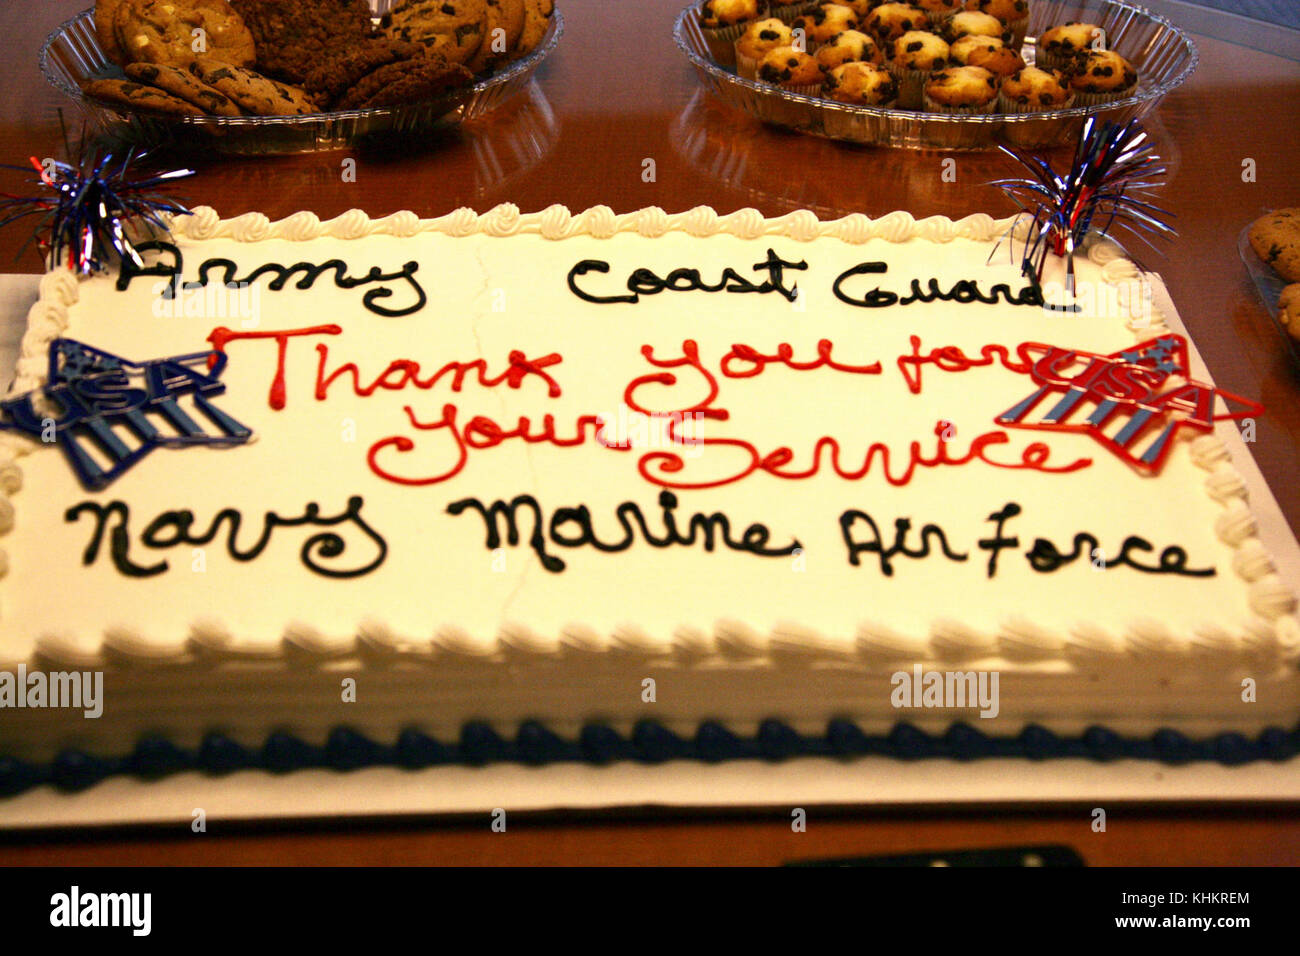 Army Coast Guard
Thank you for
your Service
Navy Marine Air Force
USA
USA
a a a a
alamy
a a a
alamy
a a
a a a a
alamy
Image ID: KHKREM
www.alamy.com